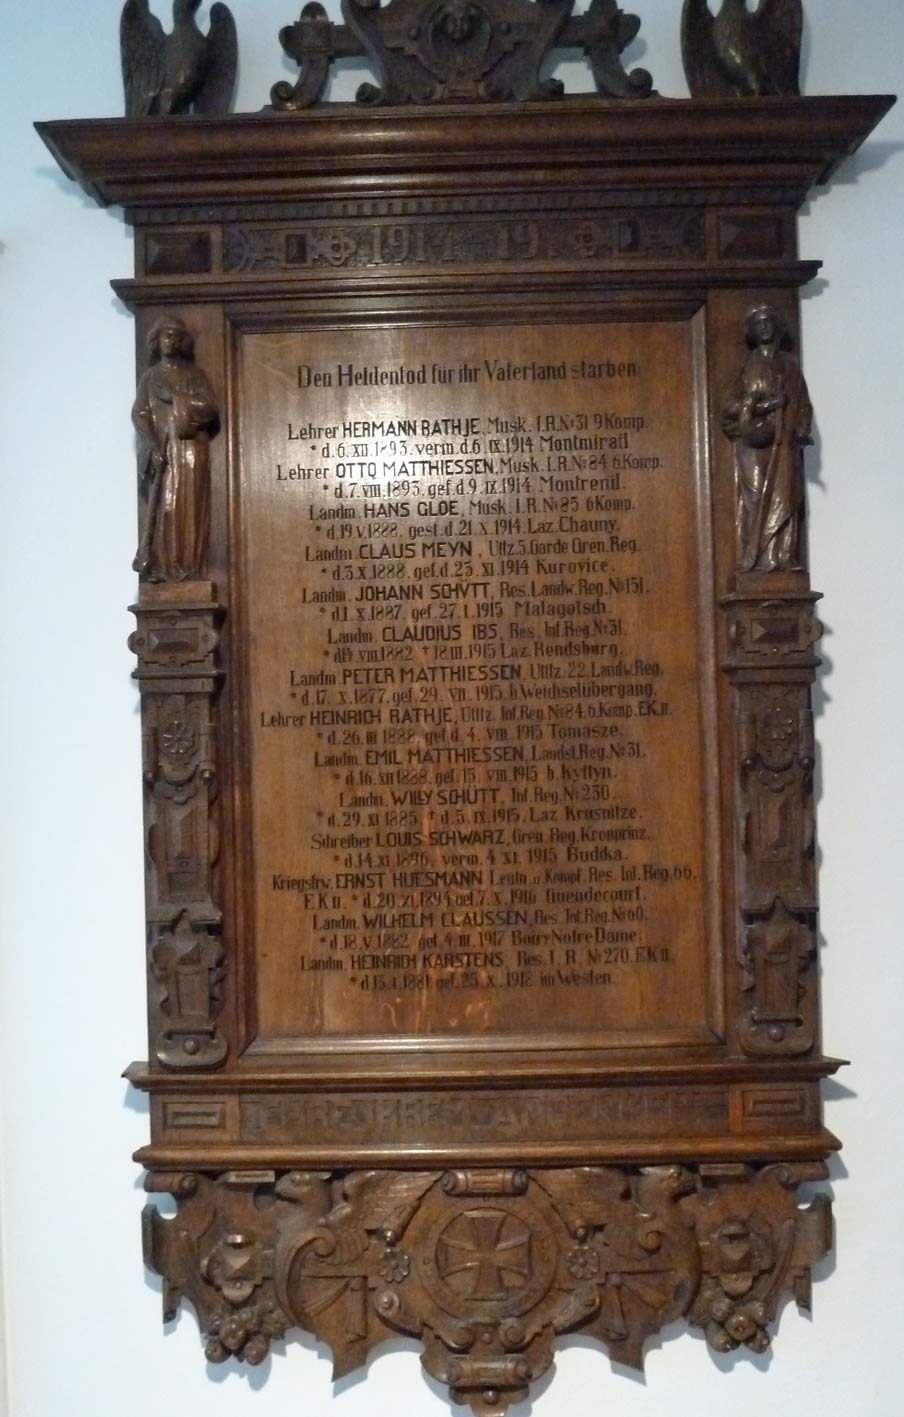 1914 19
Den Heldentod für ihr Vaterland starben
Lehrer HERMANN RATHJE, Musk. I.R.No31 9 Komp.
*d.6.XII.1893. verm.d.6.IX.1914 Montmirail
Lehrer OTTO MATTHIESSEN, Musk. I.R.No84 6 Komp.
*d.7.VIII.1893. gef.d.9.IX.1914 Montrenil.
Landm. HANS GLOE, Musk. I.R.No85 6 Komp.
*d.19.V.1888. gest.d.21.X.1914. Laz.Chauny.
Landm. CLAUS MEYN, Utfz.5.Garde Gren.Reg.
*d.3.X.1888. gef.d.23.XI.1914. Kurovice.
Landm. JOHANN SCHÜTT, Res.Landw.Reg.No131.
*d.1.X.1887. gef.27.1.1915 Malagotsch.
Landm. CLAUDIUS IBS, Res. Inf.Reg.No31.
*d.14.VIII.1882 † 18.III.1915 Laz.Rendsburg.
Landm. PETER MATTHIESSEN, Utffz. 22. Landw.Reg.
*d.17.X.1877. gef.29.VII.1915 b.Weichselübergang.
Lehrer HEINRICH RATHJE, Utffz. Inf.Reg.No84.6.Komp.E.K.II
*d.26.III.1888. gef.d.4.VIII.1915 Tomasze.
Landm. EMIL MATTHIESSEN, Landst.Reg.No31.
*d.16.XII.1888. gef.15.VIII.1915 b.Kyflyn.
Landm. WILLY SCHÜTT, Inf.Reg.No230.
*d.29.XI.1885 † d.5.IX.1915, Laz Krusnitze.
Schreiber LOUIS SCHWARZ, Gren.Reg.Kronprinz.
*d.14.X.1896. verm.4.XI.1915 Budka.
Kriegsfrw. ERNST HUESMANN, Leutn.u.Kompf.Res.Inf.Reg.66.
E.K.II. *d.20.XI.1894 gef.7.X.1916 Guendecourt.
Landm. WILHELM CLAUSSEN, Res.Inf.Reg.No
*d.18.V.1882. gef.4.III.1917 Boiry Notre Dame.
Landm. HEINRICH KARSTENS, Res.I.R.No270. E.K.II.
*d.13.I.1881 gef.25.X.1918 im Westen.
EHRE IHREM ANDENKEN